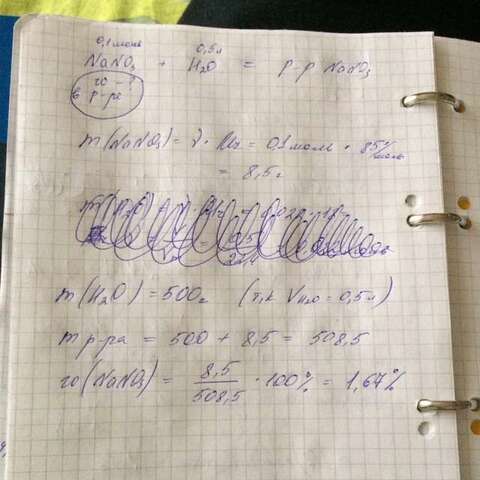 0,1 моль 0,5 л
NaNO3 + H2O = р-р NaNO3
ω - ?
в р-ре
m(NaNO3) = ν · Mr = 0,1 моль · 85 г/моль
= 8,5 г
m(H2O) = 500 г (т.к VH2O = 0,5 л)
m р-ра = 500 + 8,5 = 508,5
ω(NaNO3) = 8,5/508,5 · 100% = 1,67%